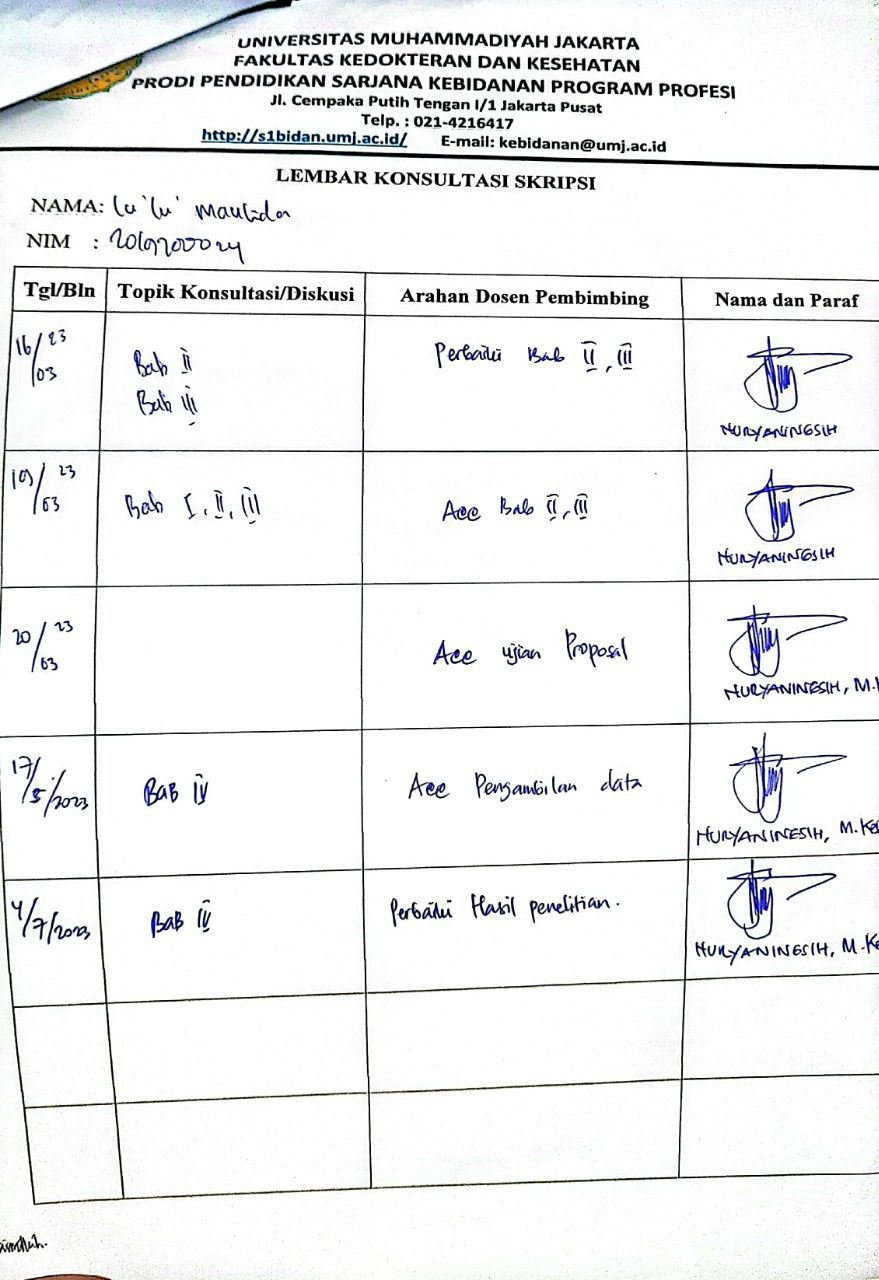 UNIVERSITAS MUHAMMADIYAH JAKARTA
FAKULTAS KEDOKTERAN DAN KESEHATAN
PRODI PENDIDIKAN SARJANA KEBIDANAN PROGRAM PROFESI
Jl. Cempaka Putih Tengah I/1 Jakarta Pusat
Telp. : 021-4216417
http://s1bidan.umj.ac.id/ E-mail: kebidanan@umj.ac.id
LEMBAR KONSULTASI SKRIPSI
NAMA: Lu'lu' Maulida
NIM :
Tgl/Bln Topik Konsultasi/Diskusi Arahan Dosen Pembimbing Nama dan Paraf
16/03 23 Bab II Perbaiki Bab II, III
Bab III
NURYANINGSIH
19/03 23 Bab I, II, III Acc Bab II, III
NURYANINGSIH
20/03 23 Acc ujian Proposal
NURYANINGSIH, M.K
17/5/2023 BAB IV Acc Pengambilan data
NURYANINGSIH, M.Ke
4/7/2023 BAB IV Perbaiki Hasil penelitian.
NURYANINGSIH, M.Ke